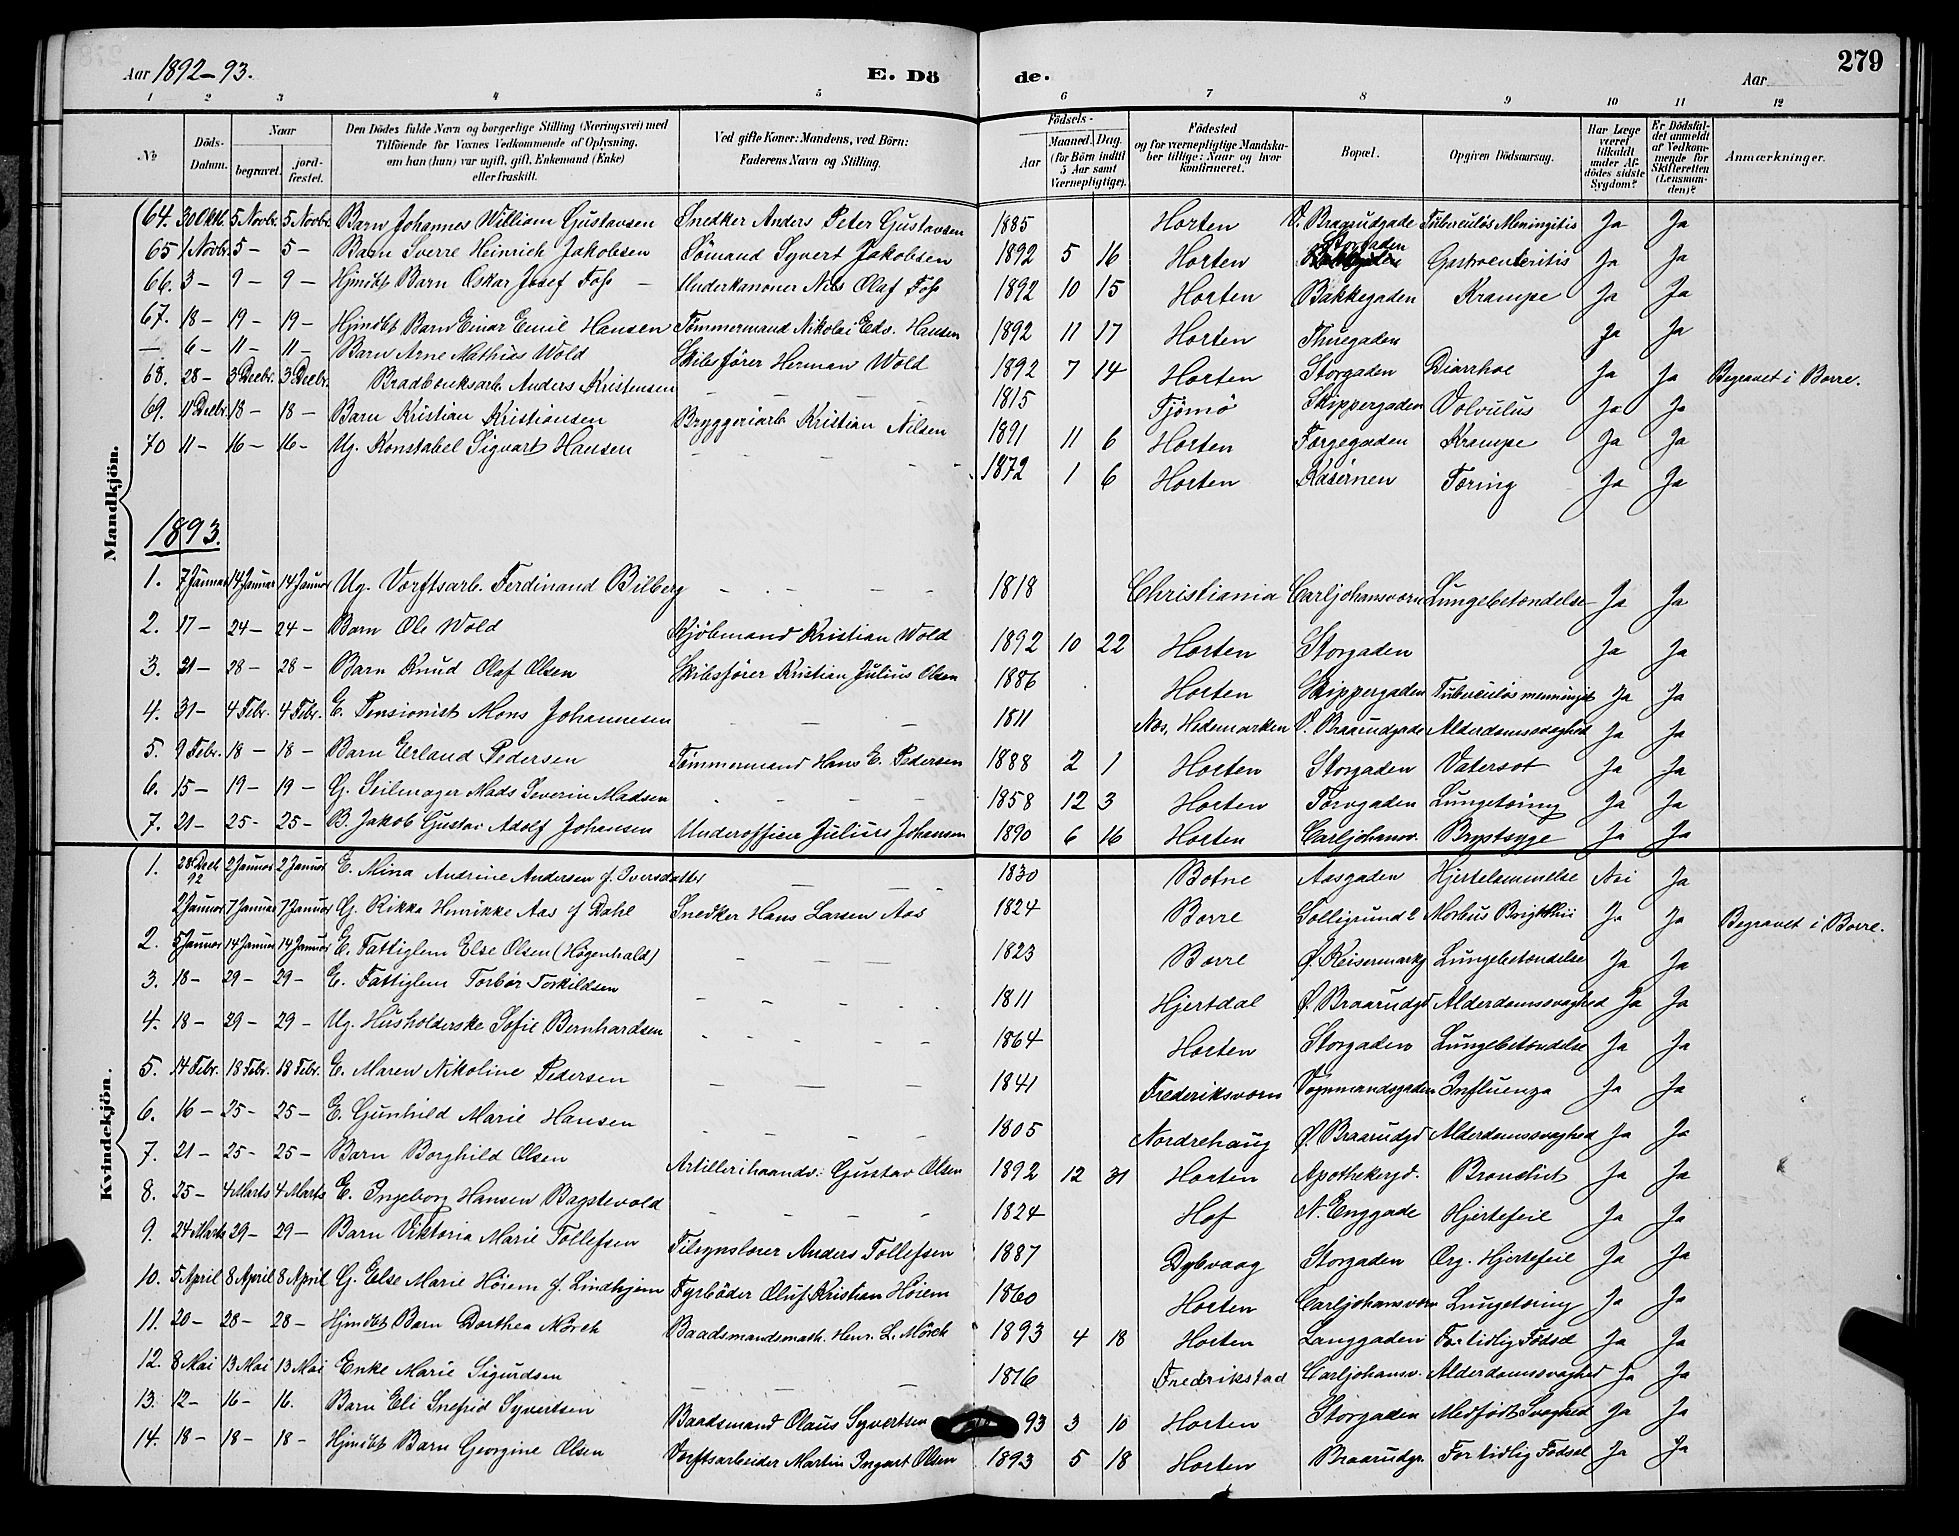 Aar 1892-93. E. Dö de. Aar 279
1 2 3 4 5 6 7 8 9 10 11 12
No Döds-Datum. Naar begravet. jordfæstet. Den Dödes fulde Navn og borgerlige Stilling (Næringsvei) med Tilföiende for Voxnes Vedkommende af Oplysning, om han (hun) var ugift, gift, Enkemand (Enke) eller fraskilt. Ved gifte Koner: Mandens, ved Börn: Faderens Navn og Stilling. Födsels- Aar Maaned. Dag. (for Börn indtil 5 Aar samt Værnepligtige). Födested og for værnepligtige Mandskaber tillige: Naar og hvor konfirmeret. Bopæl. Opgiven Dödsaarsag. Har Læge været tilkaldt under Afdödes sidste Sygdom? Er Dödsfaldet anmeldt af Vedkommende for Skifteretten (Lensmanden)? Anmærkninger.
Mandkjön.
64. 30 Oktb. 5 Novbr. 5 Novbr. Barn Johannes William Gustavsen Snedker Anders Peter Gustavsen 1885 Horten V. Braarudgade Tuberculøs Meningitis Ja Ja
65 1 Novbr. 5 - 5 - Barn Sverre Heinrich Jakobsen Sömand Syvert Jakobsen 1892 5 16 Horten Storgaden Gastroenteritis Ja Ja
66. 3 - 9 - 9 - Hjmdbt Barn Oskar Josef Foss - Underkanoner Nils Olaf Foss 1892 10 15 Horten Bakkegaden Krampe Ja Ja
67. 18 - 19 - 19 - Hjmdbt Barn Einar Emil Hansen Tömmermand Nikolai Edv. Hansen 1892 11 17 Horten Thuegaden Ja Ja
— 6 - 11 - 11 - Barn Arne Mathias Wold Skibsförer Herman Wold 1892 7 14 Horten Storgaden Diarrhoe Ja Ja Begravet i Borre.
68. 28 - 3 Decbr. 3 Decbr. Bradbænksarb. Anders Kristensen - - - - 1815 Tjömö Skippergaden Volvulus Ja Ja
69. 11 Decbr. 18 - 18 - Barn Kristian Kristiansen Bryggeriarb. Kristian Nilsen 1891 11 6 Horten Færgegaden Krampe Ja Ja
70 11 - 16 - 16 - Ug. Konstabel Sigvart Hansen - - - - 1872 1 6 Horten Kasernen Tæring Ja Ja
1893.
1. 7 Januar 14 Januar 14 Januar Ug. Værftsarb. Ferdinand Bilberg - - - - 1818 Christiania Carljohansværn Lungebetændelse Ja Ja
2. 17 - 24 - 24 - Barn Ole Wold Kjöbmand Kristian Wold 1892 10 22 Horten Storgaden Ja Ja
3. 21 - 28 - 28 - Barn Knud Olaf Olsen Skibsförer Kristian Julius Olsen 1886 Horten Skippergaden Tuberculøs menningit Ja Ja
4. 31 - 4 Febr. 4 Febr. E. Pensionist Mons Johannesen - - - 1811 Næs, Hedemarken V. Braarudgade Alderdomssvaghed Ja Ja
5. 9 Febr. 18 - 18 - Barn Erland Pedersen Tömmermand Hans E. Pedersen 1888 2 1 Horten Storgaden Vatersot Ja Ja
6. 15 - 19 - 19 - G. Seilmager Mads Severin Madsen - - - - 1858 12 3 Horten Torvgaden Lungetæring Ja Ja
7. 21 - 25 - 25 - B. Jakob Gustav Adolf Johansen Underofficer Julius Johansen 1890 6 16 Horten Carljohansv. Brystsyge Ja Ja
Kvindekjön.
1. 28 Decb 92 2 Januar 2 Januar E. Mina Andrine Andersen f. Iversdatter - - - 1830 Botne Aasgaden Hjertelammelse Nei Ja
2 Januar 7 Januar 7 Januar G. Rikka Henrikke Aas f Dahl Snedker Hans Larsen Aas 1824 Borre Solligrund 2 Morbus Brigthii Ja Ja Begravet i Borre.
2. 5 Januar 14 Januar 14 Januar E. Fattiglem Else Olsen (Högenhald) - - - - 1823 Borre Ø. Keisermarkg Lungebetændelse Ja Ja
3. 18 - 29 - 29 - E. Fattiglem Torbør Torkildsen - - - 1811 Hjertdal Ø. Braarudgd Alderdomssvaghed Ja Ja
4. 18 - 29 - 29 - Ug. Husholderske Sofie Bernhardsen - - - - 1864 Horten Storgaden Lungebetændelse Ja Ja
5. 14 Febr. 18 Febr. 18 Febr. E. Maren Nikoline Pedersen - - - 1841 Frederiksværn Vognmandsgaden Influenza Ja Ja
6. 16 - 25 - 25 - E. Gunhild Marie Hansen - - - - 1805 Nordrehaug Ø. Braarudgd Alderdomssvaghed Ja Ja
7. 21 - 25 - 25 - Barn Borghild Olsen Artillerihaandv. Gustav Olsen 1892 12 31 Horten Apothekergd. Bronchit Ja Ja
8. 25 - 4 Marts 4 Marts E. Ingeborg Hansen Bagstevold - - - - 1824 Hof N. Enggade Hjertefeil Ja Ja
9. 24 Marts 29 - 29 - Barn Viktoria Marie Tollefsen Tilsynslærer Anders Tollefsen 1887 Dybvaag Storgaden Org. Hjertefeil Ja Ja
10. 5 April 8 April 8 April G. Else Marie Höiem f. Lindhjem Fyrböder Oluf Kristian Höiem 1860 Horten Carljohansværn Lungetæring Ja Ja
11. 20 - 28 - 28 - Hjmdbt Barn Dorthea Mörch Baadsmandsmath. Henr. L. Mörch 1893 4 18 Horten Langgaden For tidlig Fødsel Ja Ja
12. 8 Mai 13 Mai 13 Mai Enke Marie Sigurdsen - - - 1816 Fredrikstad Carljohansv. Alderdomssvaghed Ja Ja
13. 12 - 16 - 16. Barn Eli Snefrid Syvertsen Baadsmand Olaus Syvertsen 93 3 10 Horten Storgaden Medfødt Svaghed Ja Ja
14. 18 - 18 - 18 - Hjmdbt Barn Georgine Olsen Værftsarbeider Martin Ingvart Olsen 1893 5 18 Horten Braarudgr. For tidlig Fødsel Ja Ja